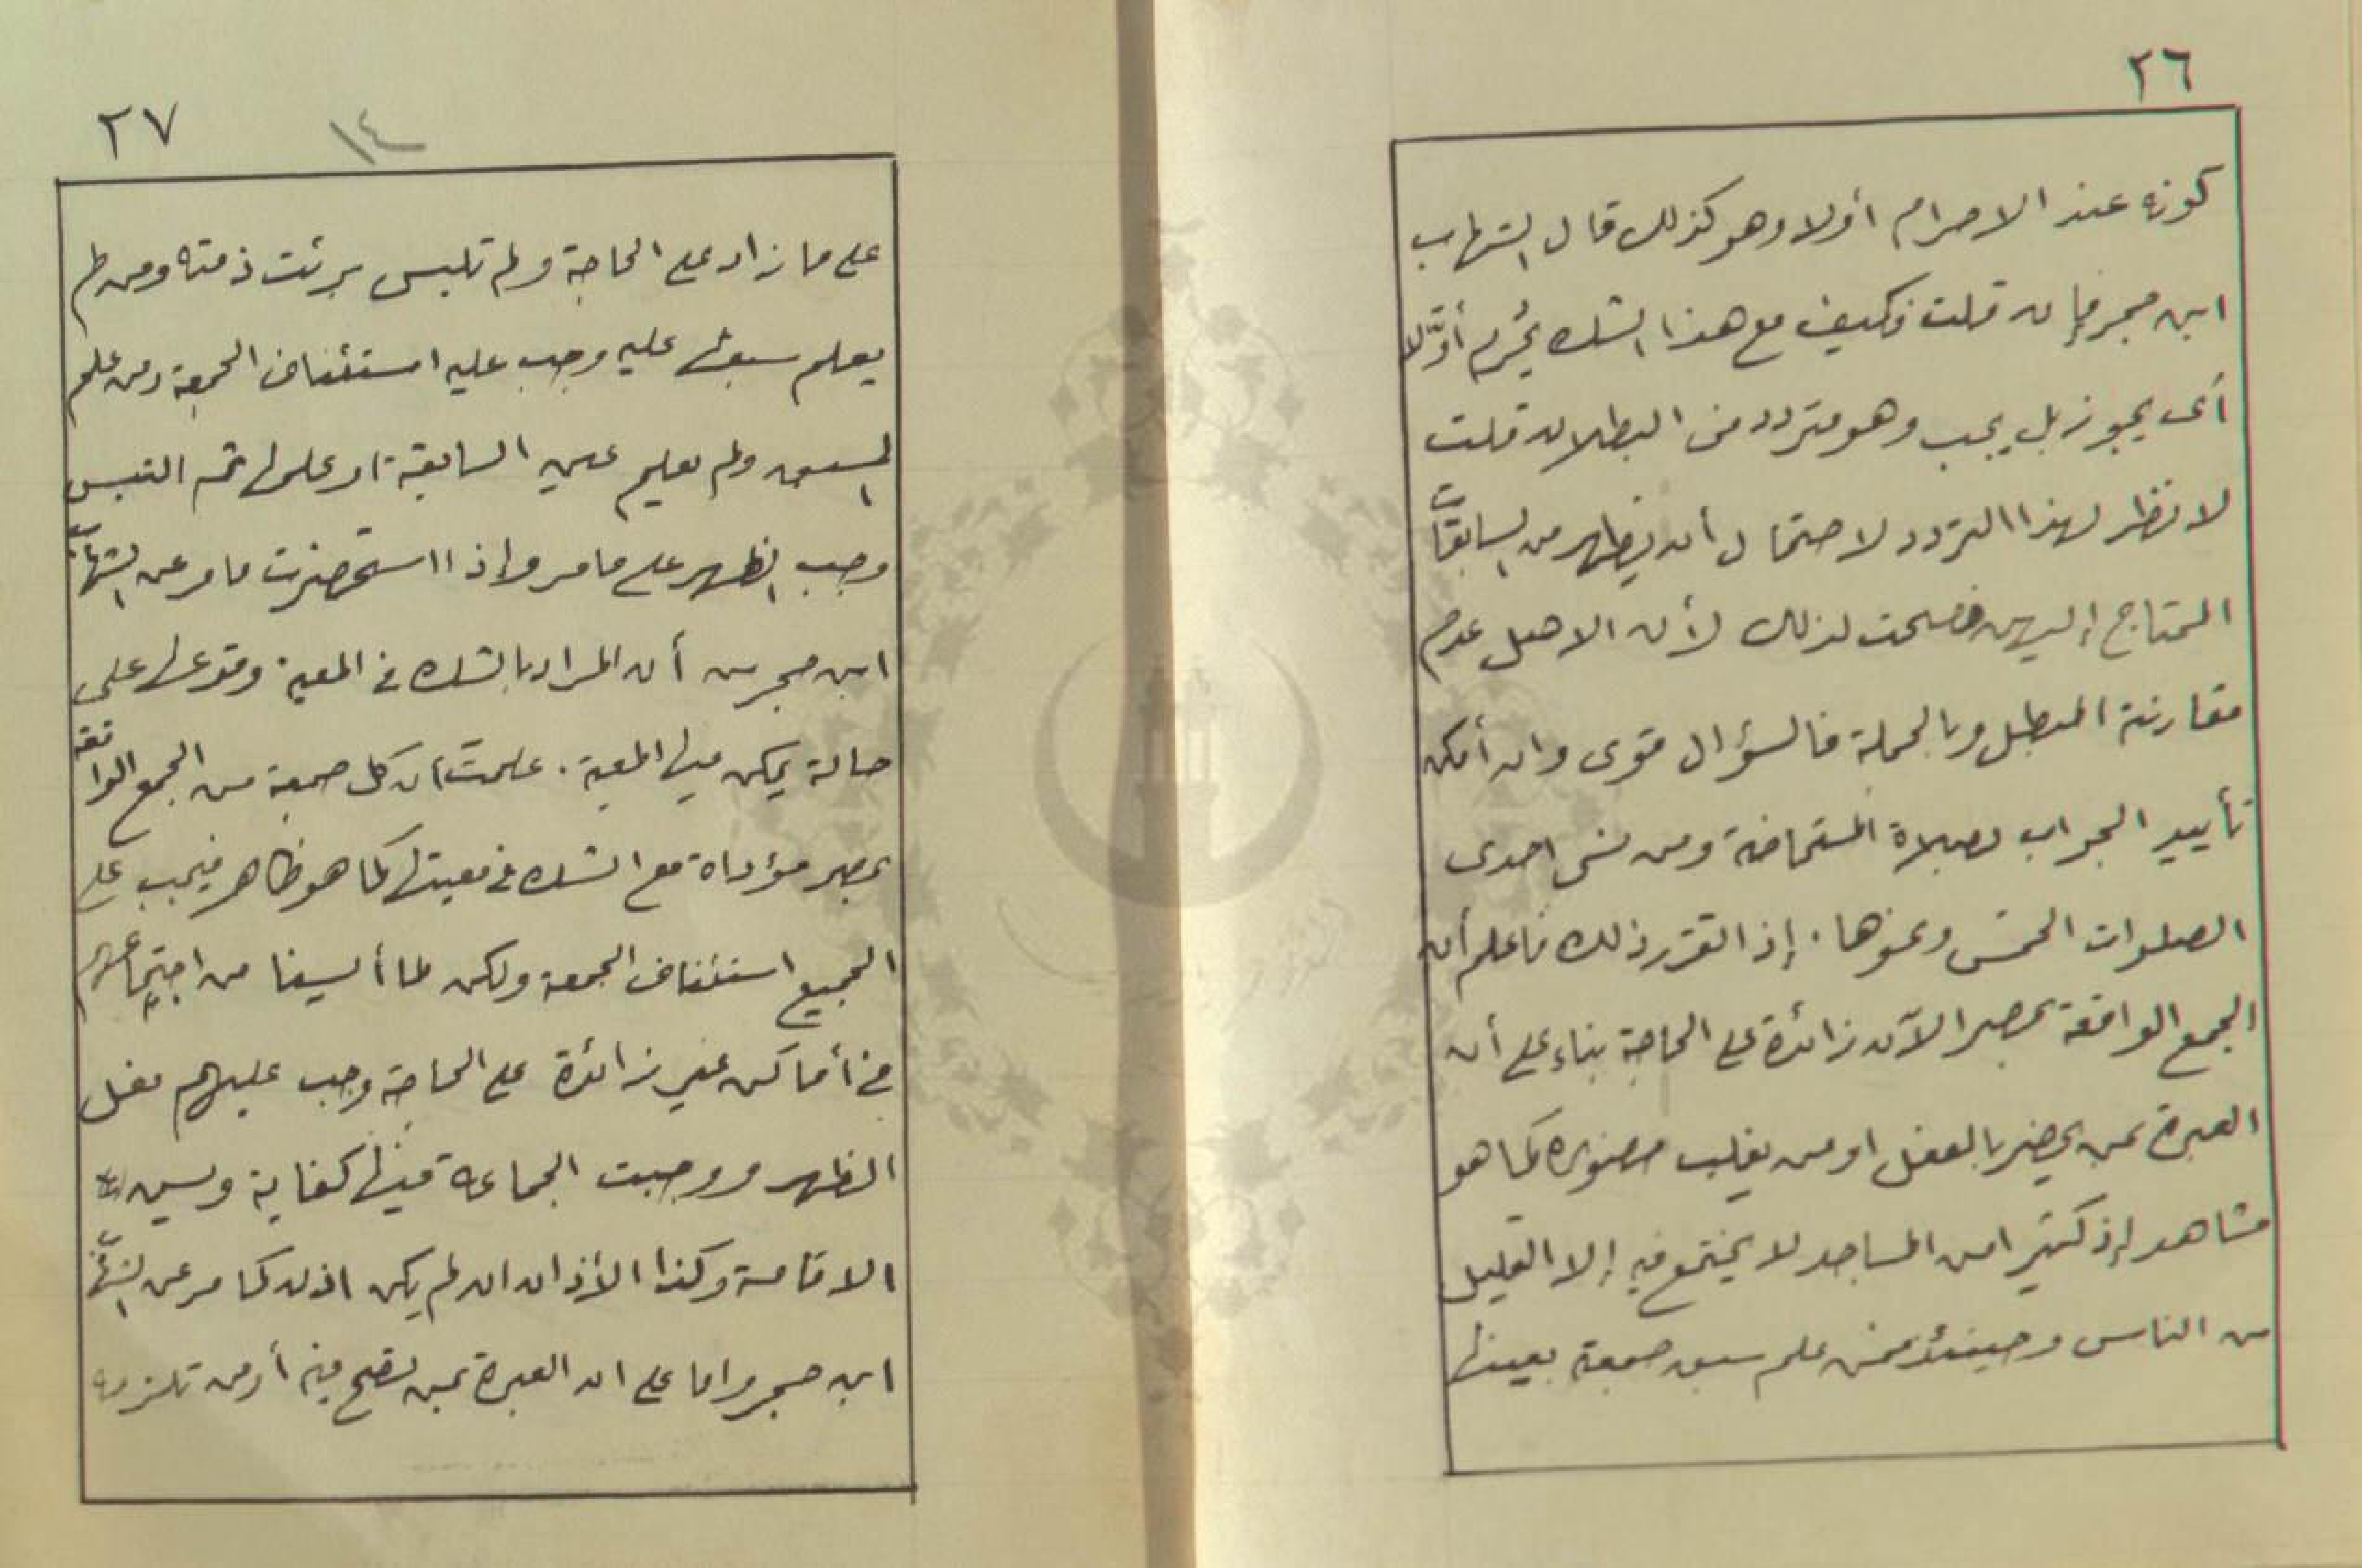 ٢٦
كونه عند الاحرام أولا وهو كذلك قال الشهاب
ابن حجر فإن قلت فكيف مع هذا الشك يُحْرِم أوّلا
أى يجوز بل يجب وهو متردد فى البطلان قلت
لا نظر لهذا التردد لاحتمال أن يظهر من السابقات
المحتاج إليهن فصحت لذلك لأن الاصل عدم
مقارنة المبطل وبالجملة فالسؤال قوى وان أمكن
تأييد الجواب بصلاة المستحاضة ومن نسى احدى
الصلوات الخمس ونحوها . إذا تقرر ذلك فاعلم أن
الجمع الواقعة بمصر الآن زائدة على الحاجة بناء على أن
العبرة بمن يحضر بالفعل او من يغلب حضوره كما هو
مشاهد إذ كثيرا من المساجد لا يجتمع فيه إلا القليل
من الناس وحينئذ فمن علم سبق جمعة بعينها
٢٧
١٤
على ما زاد على الحاجة ولم تلبس برئت ذمته ومن لم
يعلم سبقا عليه وجب عليه استئناف الجمعة ومن علم
السبق ولم يعلم عين السابقة او علمها ثم التبس
وجب الظهر على ما مر واذا استحضرت ما مر عن الشهاب
ابن حجر من أن المراد بالشك فى المعية وقوعها على
حالة يمكن فيها المعية . علمت ان كل جمعة من الجمع الواقعة
بمصر مؤداة مع الشك فى معيتها كما هو ظاهر فيجب على
الجميع استئناف الجمعة ولكن لما أيسنا من اجتماعهم
فى أماكن غير زائدة على الحاجة وجب عليهم فعل
الظهر ووجبت الجماعة فيها كفاية وليس لها
الاقامة وكذا الأذان ان لم يكن اذن كما مر عن الشهاب
ابن حجر واما على ان العبرة بمن تصح منه أو من تلزمه